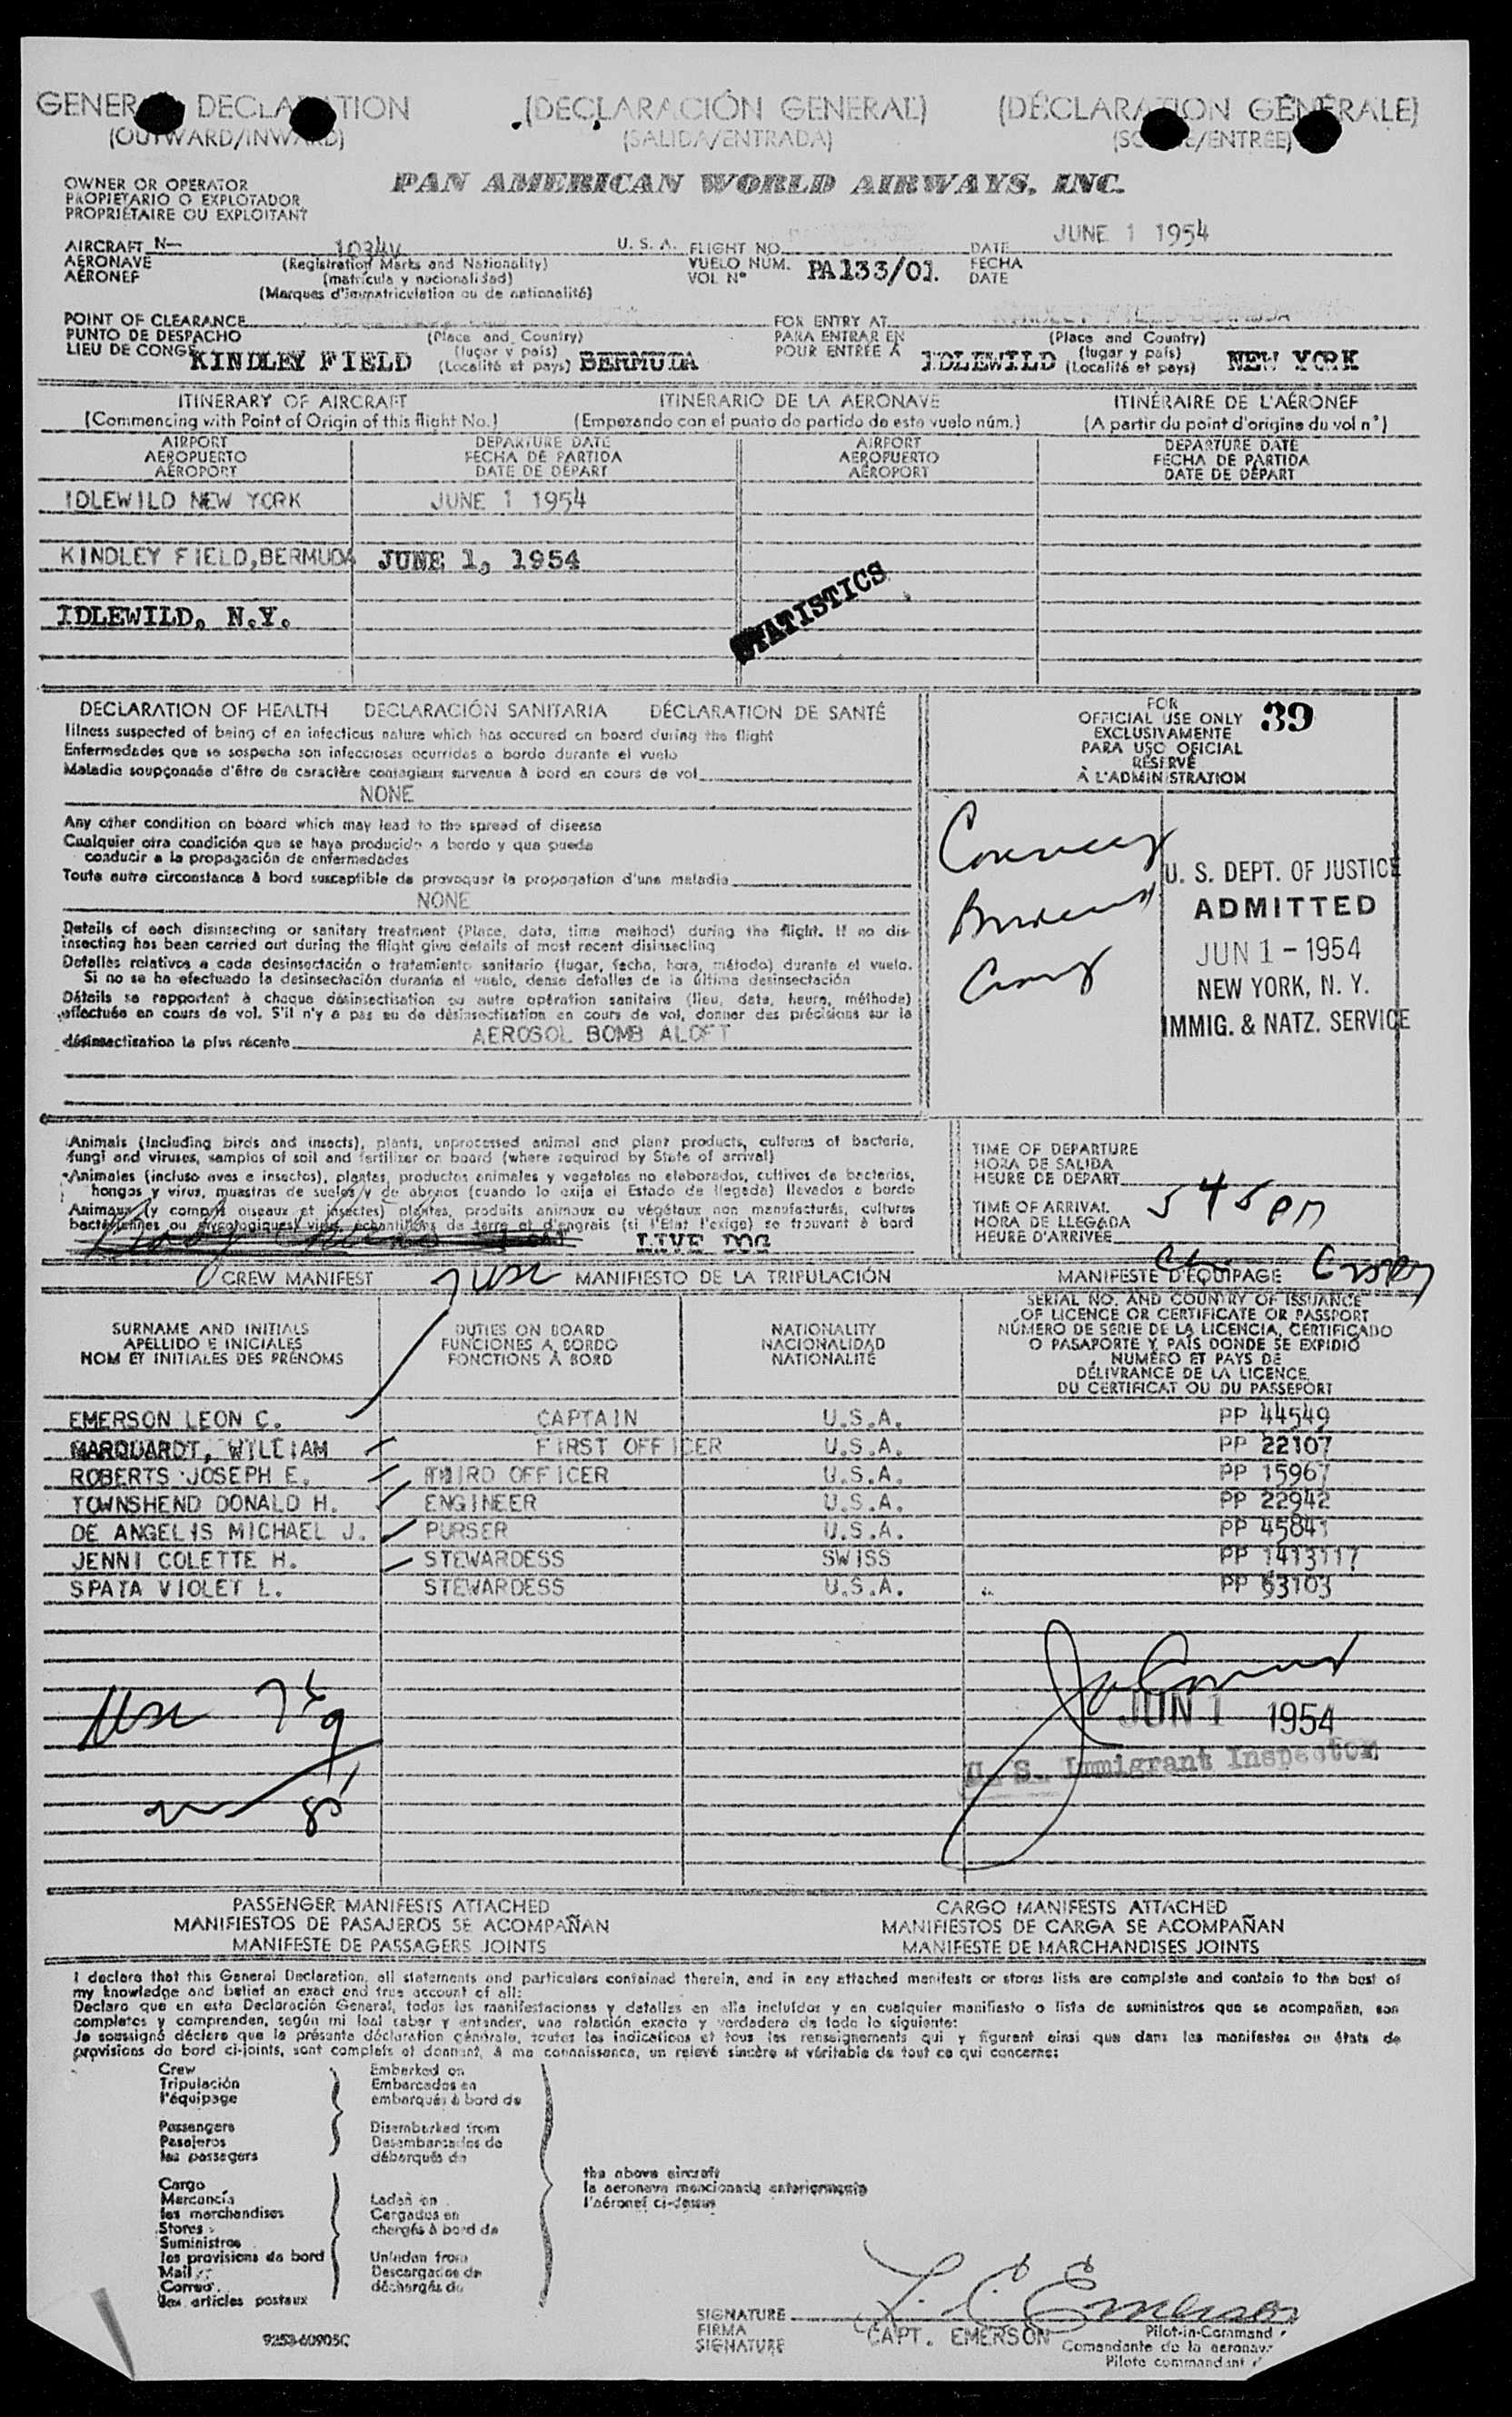 GENERAL DECLARATION (DECLARACIÓN GENERAL) (DÉCLARATION GÉNÉRALE)
(OUTWARD/INWARD) (SALIDA/ENTRADA) (SORTIE/ENTRÉE)
OWNER OR OPERATOR PAN AMERICAN WORLD AIRWAYS, INC.
PROPIETARIO O EXPLOTADOR
PROPRIÉTAIRE OU EXPLOITANT
JUNE 1 1954
AIRCRAFT N— 1034V U. S. A. FLIGHT NO. DATE
AERONAVE (Registration Marks and Nationality) VUELO NUM. PA133/01. FECHA
AÉRONEF (matrícula y nacionalidad) VOL Nº DATE
(Marques d'immatriculation ou de nationalité)
POINT OF CLEARANCE FOR ENTRY AT KINDLEY FIELD BERMUDA
PUNTO DE DESPACHO (Place and Country) PARA ENTRAR EN (Place and Country)
LIEU DE CONGÉ KINDLEY FIELD (lugar y país) (Localité et pays) BERMUDA POUR ENTRÉE À IDLEWILD (lugar y país) (Localité et pays) NEW YORK
ITINERARY OF AIRCRAFT ITINERARIO DE LA AERONAVE ITINÉRAIRE DE L'AÉRONEF
(Commencing with Point of Origin of this flight No.) (Empezando con el punto de partida de este vuelo núm.) (A partir du point d'origine du vol nº)
AIRPORT DEPARTURE DATE AIRPORT DEPARTURE DATE
AEROPUERTO FECHA DE PARTIDA AEROPUERTO FECHA DE PARTIDA
AÉROPORT DATE DE DÉPART AÉROPORT DATE DE DÉPART
IDLEWILD NEW YORK JUNE 1 1954
KINDLEY FIELD,BERMUDA JUNE 1, 1954
STATISTICS
IDLEWILD, N.Y.
DECLARATION OF HEALTH DECLARACIÓN SANITARIA DÉCLARATION DE SANTÉ
Illness suspected of being of an infectious nature which has occured on board during the flight
Enfermedades que se sospecha son infecciosas ocurridas a bordo durante el vuelo
Maladie soupçonnée d'être de caractère contagieux survenue à bord en cours de vol
NONE
Any other condition on board which may lead to the spread of disease
Cualquier otra condición que se haya producido a bordo y que pueda
conducir a la propagación de enfermedades
Toute autre circonstance à bord susceptible de provoquer la propagation d'une maladie
NONE
Details of each disinsecting or sanitary treatment (Place, date, time method) during the flight. If no dis-
insecting has been carried out during the flight give details of most recent disinsecting
Detalles relativos a cada desinsectación o tratamiento sanitario (lugar, fecha, hora, método) durante el vuelo.
Si no se ha efectuado la desinsectación durante el vuelo, dense detalles de la última desinsectación
Détails se rapportant à chaque désinsectisation ou autre opération sanitaire (lieu, date, heure, méthode)
effectuée en cours de vol. S'il n'y a pas eu de désinsectisation en cours de vol, donner des précisions sur la
désinsectisation la plus récente AEROSOL BOMB ALOFT
FOR
OFFICIAL USE ONLY 39
EXCLUSIVAMENTE
PARA USO OFICIAL
RÉSERVÉ
À L'ADMINISTRATION
U. S. DEPT. OF JUSTICE
ADMITTED
JUN 1 - 1954
NEW YORK, N. Y.
IMMIG. & NATZ. SERVICE
Animals (Including birds and insects), plants, unprocessed animal and plant products, cultures of bacteria,
fungi and viruses, samples of soil and fertilizer on board (where required by State of arrival)
Animales (incluso aves e insectos), plantas, productos animales y vegetales no elaborados, cultivos de bacterias,
hongos y virus, muestras de suelos y de abonos (cuando lo exija el Estado de llegada) llevados a bordo
Animaux (y compris oiseaux et insectes) plantes, produits animaux ou végétaux non manufacturés, cultures
bactériennes ou mycologiques, virus, échantillons de terre et d'engrais (si l'Etat l'exige) se trouvant à bord
LIVE DOG
TIME OF DEPARTURE
HORA DE SALIDA
HEURE DE DÉPART
TIME OF ARRIVAL 545 PM
HORA DE LLEGADA
HEURE D'ARRIVÉE
CREW MANIFEST MANIFIESTO DE LA TRIPULACIÓN MANIFESTE D'ÉQUIPAGE
SURNAME AND INITIALS DUTIES ON BOARD NATIONALITY SERIAL NO. AND COUNTRY OF ISSUANCE
APELLIDO E INICIALES FUNCIONES A BORDO NACIONALIDAD OF LICENCE OR CERTIFICATE OR PASSPORT
NOM ET INITIALES DES PRÉNOMS FONCTIONS À BORD NATIONALITÉ NÚMERO DE SERIE DE LA LICENCIA, CERTIFICADO
O PASAPORTE Y PAÍS DONDE SE EXPIDIÓ
NUMÉRO ET PAYS DE
DÉLIVRANCE DE LA LICENCE,
DU CERTIFICAT OU DU PASSEPORT
EMERSON LEON C. CAPTAIN U.S.A. PP 44549
MARQUARDT, WILLIAM FIRST OFFICER U.S.A. PP 22107
ROBERTS JOSEPH E. THIRD OFFICER U.S.A. PP 15967
TOWNSHEND DONALD H. ENGINEER U.S.A. PP 22942
DE ANGELIS MICHAEL J. PURSER U.S.A. PP 45841
JENNI COLETTE H. STEWARDESS SWISS PP 1413117
SPATA VIOLET L. STEWARDESS U.S.A. PP 63103
JUN 1 1954
U. S. Immigrant Inspector
PASSENGER MANIFESTS ATTACHED CARGO MANIFESTS ATTACHED
MANIFIESTOS DE PASAJEROS SE ACOMPAÑAN MANIFIESTOS DE CARGA SE ACOMPAÑAN
MANIFESTE DE PASSAGERS JOINTS MANIFESTE DE MARCHANDISES JOINTS
I declare that this General Declaration, all statements and particulars contained therein, and in any attached manifests or stores lists are complete and contain to the best of
my knowledge and belief an exact and true account of all:
Declaro que en esta Declaración General, todas las manifestaciones y detalles en ella incluídos y en cualquier manifiesto o lista de suministros que se acompañan, son
completos y comprenden, según mi leal saber y entender, una relación exacta y verdadera de todo lo siguiente:
Je soussigné déclare que la présente déclaration générale, toutes les indications et tous les renseignements qui y figurent ainsi que dans les manifestes ou états de
provisions de bord ci-joints, sont complets et donnent, à ma connaissance, un relevé sincère et véritable de tout ce qui concerne:
Crew Embarked on
Tripulación Embarcados en
l'équipage embarqués à bord de
Passengers Disembarked from
Pasajeros Desembarcados de
les passagers débarqués de
the above aircraft
la aeronave mencionada anteriormente
l'aéronef ci-dessus
Cargo
Mercancía Laden on
les marchandises Cargados en
Stores chargés à bord de
Suministros
les provisions de bord Unladen from
Mail Descargados de
Correo déchargés de
les articles postaux
SIGNATURE L. C. Emerson
FIRMA CAPT. EMERSON Pilot-in-Command
SIGNATURE Comandante de la aeronave
Pilote commandant
9253-60905C